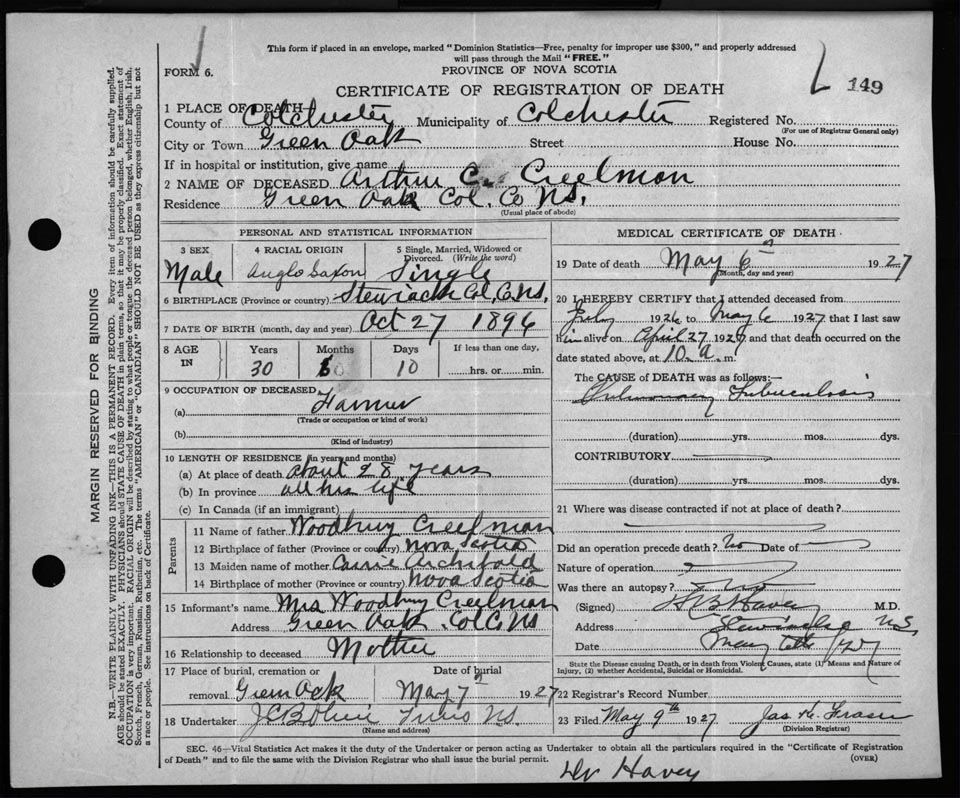 This form if placed in an envelope, marked "Dominion Statistics—Free, penalty for improper use $300," and properly addressed
will pass through the Mail "FREE."
FORM 6.
PROVINCE OF NOVA SCOTIA
149
CERTIFICATE OF REGISTRATION OF DEATH
1 PLACE OF DEATH—
County of Colchester Municipality of Colchester Registered No.
(For use of Registrar General only)
City or Town Green Oak Street House No.
If in hospital or institution, give name
2 NAME OF DECEASED Arthur C. Creelman
Residence Green Oak Col. Co N.S.
(Usual place of abode)
PERSONAL AND STATISTICAL INFORMATION
3 SEX 4 RACIAL ORIGIN 5 Single, Married, Widowed or
Divorced. (Write the word)
Male Anglo Saxon Single
6 BIRTHPLACE (Province or country) Stewiacke Col. Co. N.S.
7 DATE OF BIRTH (month, day and year) Oct 27 1896
8 AGE IN Years Months Days If less than one day,
30 10 hrs. or min.
9 OCCUPATION OF DECEASED
(a) Farmer
(Trade or occupation or kind of work)
(b)
(Kind of industry)
10 LENGTH OF RESIDENCE (in years and months)
(a) At place of death about 28 years
(b) In province all his life
(c) In Canada (if an immigrant)
Parents
11 Name of father Woodbury Creelman
12 Birthplace of father (Province or country) Nova Scotia
13 Maiden name of mother Carrie Archibald
14 Birthplace of mother (Province or country) Nova Scotia
15 Informant's name Mrs Woodbury Creelman
Address Green Oak Col Co NS
16 Relationship to deceased Mother
17 Place of burial, cremation or Date of burial
removal Green Oak May 7 1927
18 Undertaker Truro N.S.
(Name and address)
MEDICAL CERTIFICATE OF DEATH
19 Date of death May 6 1927
(Month, day and year)
20 I HEREBY CERTIFY that I attended deceased from
July 1926 to May 6 1927 that I last saw
him alive on April 27 192 and that death occurred on the
date stated above, at 10 a. m.
The CAUSE of DEATH was as follows:—
Pulmonary Tuberculosis
(duration) yrs. mos. dys.
CONTRIBUTORY
(duration) yrs. mos. dys.
21 Where was disease contracted if not at place of death?
Did an operation precede death? No Date of
Nature of operation
Was there an autopsy? No
(Signed) Havey M.D.
Address Stewiacke N.S.
Date May
State the Disease causing Death, or in death from Violent Causes, state (1) Means and Nature of
Injury, (2) whether Accidental, Suicidal or Homicidal.
22 Registrar's Record Number
23 Filed May 9th 1927 Jas. Fraser
(Division Registrar)
SEC. 46—Vital Statistics Act makes it the duty of the Undertaker or person acting as Undertaker to obtain all the particulars required in the "Certificate of Registration
of Death" and to file the same with the Division Registrar who shall issue the burial permit. (OVER)
Dr Havey
MARGIN RESERVED FOR BINDING
N.B.—WRITE PLAINLY WITH UNFADING INK—THIS IS A PERMANENT RECORD. Every item of information should be carefully supplied.
AGE should be stated EXACTLY. PHYSICIANS should STATE CAUSE OF DEATH in plain terms, so that it may be properly classified. Exact statement of
OCCUPATION is very important. RACIAL ORIGIN will be described by stating to what people or tongue the deceased person belonged, whether English, Irish,
Scotch, French, German, Russian, Ruthenian, etc. The terms "AMERICAN" or "CANADIAN" SHOULD NOT BE USED as they express citizenship but not
a race or people. See instructions on back of Certificate.